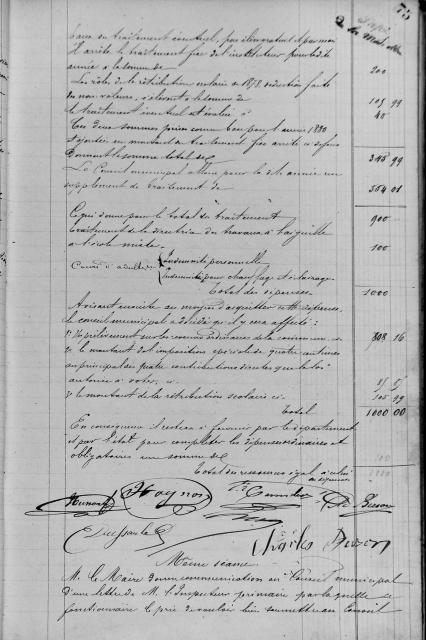 75
base du traitement éventuel, par élèves
Il arrête le traitement fixe de l'instituteur pour ladite
année à la somme de 200
Les rôles de la rétribution scolaire de 1878, déduction faite
des non-valeurs, s'élèvent à la somme de 105 99
Le traitement éventuel est évalué à 40
Ces deux sommes prises comme base pour l'année 1880
et ajoutées au montant du traitement fixe arrêté ci-dessus
donnent la somme totale de 345 99
Le Conseil municipal alloue pour la dite année un
supplément de traitement de 554 01
Ce qui donne pour le total du traitement 900
Traitement de la directrice des travaux à l'aiguille
à l'école mixte 100
Cours d'adultes Indemnité personnelle
Indemnité pour chauffage et éclairage
Total des dépenses 1000
Avisant ensuite au moyen d'acquitter cette dépense,
le conseil municipal a décidé qu'il y sera affecté :
1° Prélèvement sur les revenus ordinaires de la commune 808 16
2° le montant de l'imposition spéciale de quatre centimes
au principal des quatre contributions directes que la loi
autorise à voter, ci
3° le montant de la rétribution scolaire ci 105 99
Total 1000 00
En conséquence il restera à fournir par le département
et par l'état pour compléter les dépenses ordinaires et
obligatoires une somme de
Total des ressources égal à celui
des dépenses
Hoynon
Dussaule
Charles
Même séance
M. le Maire donne communication au Conseil municipal
d'une lettre de M. l'Inspecteur primaire par laquelle ce
fonctionnaire le prie de vouloir bien soumettre au Conseil